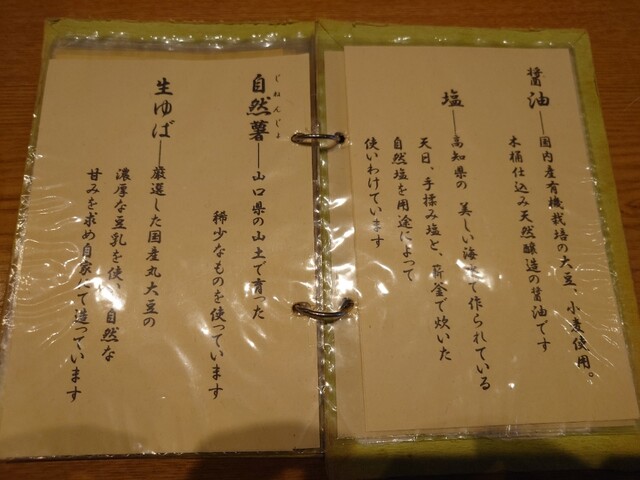 醤油──国内産有機栽培の大豆、小麦使用。
木桶仕込み天然醸造の醤油です
塩──高知県の 美しい海 で作られている
天日、手揉み塩と、薪釜で炊いた
自然塩を用途によって
使いわけています
自然薯──山口県の山土で育った
じねんじょ
稀少なものを使っています
生ゆば──厳選した国産丸大豆の
濃厚な豆乳を使い、自然な
甘みを求め自家 て造っています